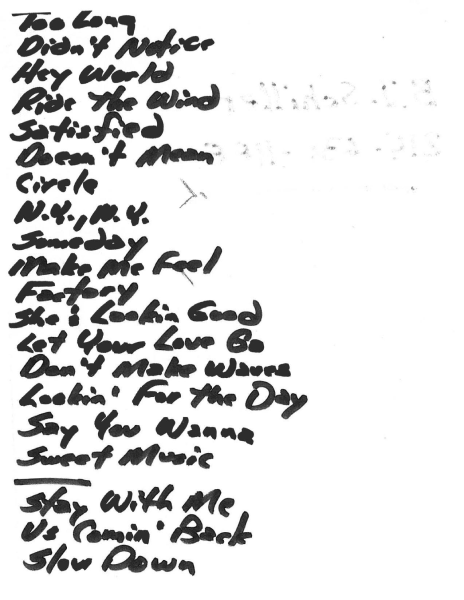 Too Long
Didn't Notice
Hey World
Ride The Wind
Satisfied
Doesn't Mean
Circle
N.Y., N.Y.
Someday
Make Me Feel
Factory
She's Lookin Good
Let Your Love Go
Don't Make Waves
Lookin' For the Day
Say You Wanna
Sweet Music
Stay With Me
Us Comin' Back
Slow Down